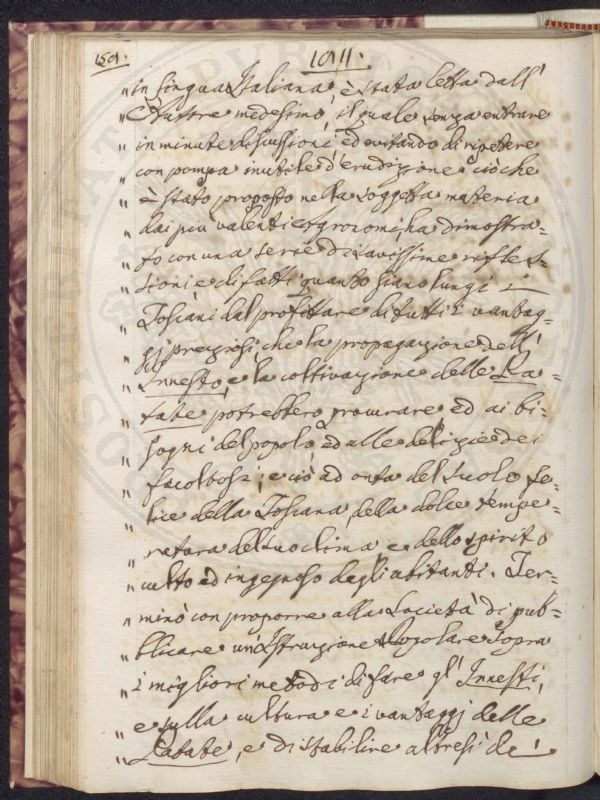 159.
1011.
" in lingua Italiana, è stata letta dall'
" Autore medesimo, il quale senza entrare
" in minute discussioni, ed evitando di ripetere
" con pompa inutile d'erudizione ciò che
" è stato proposto nella soggetta materia
" dai più valenti Agronomi, ha dimostra=
" to con una serie di savissime rifles=
" sioni e di fatti quanto siano lungi i
" Toscani dal profittare di tutti i vantag=
" gj preziosi, che la propagazione dell'
" Innesto, e la coltivazione delle Pa=
" tate potrebbero procurare ed ai bi=
" sogni del popolo, ed alle delizie dei
" facoltosi; e ciò ad onta del suolo fe=
" lice della Toscana, della dolce tempe=
" ratura del suo clima, e dello spirito
" culto ed ingegnoso degli abitanti. Ter=
" minò con proporre alla Società di pub=
" blicare un'Istruzione Popolare sopra
" i migliori metodi di fare gl'Innesti,
" e sulla cultura e i vantaggj delle
" Patate, e di stabilire altresì de'